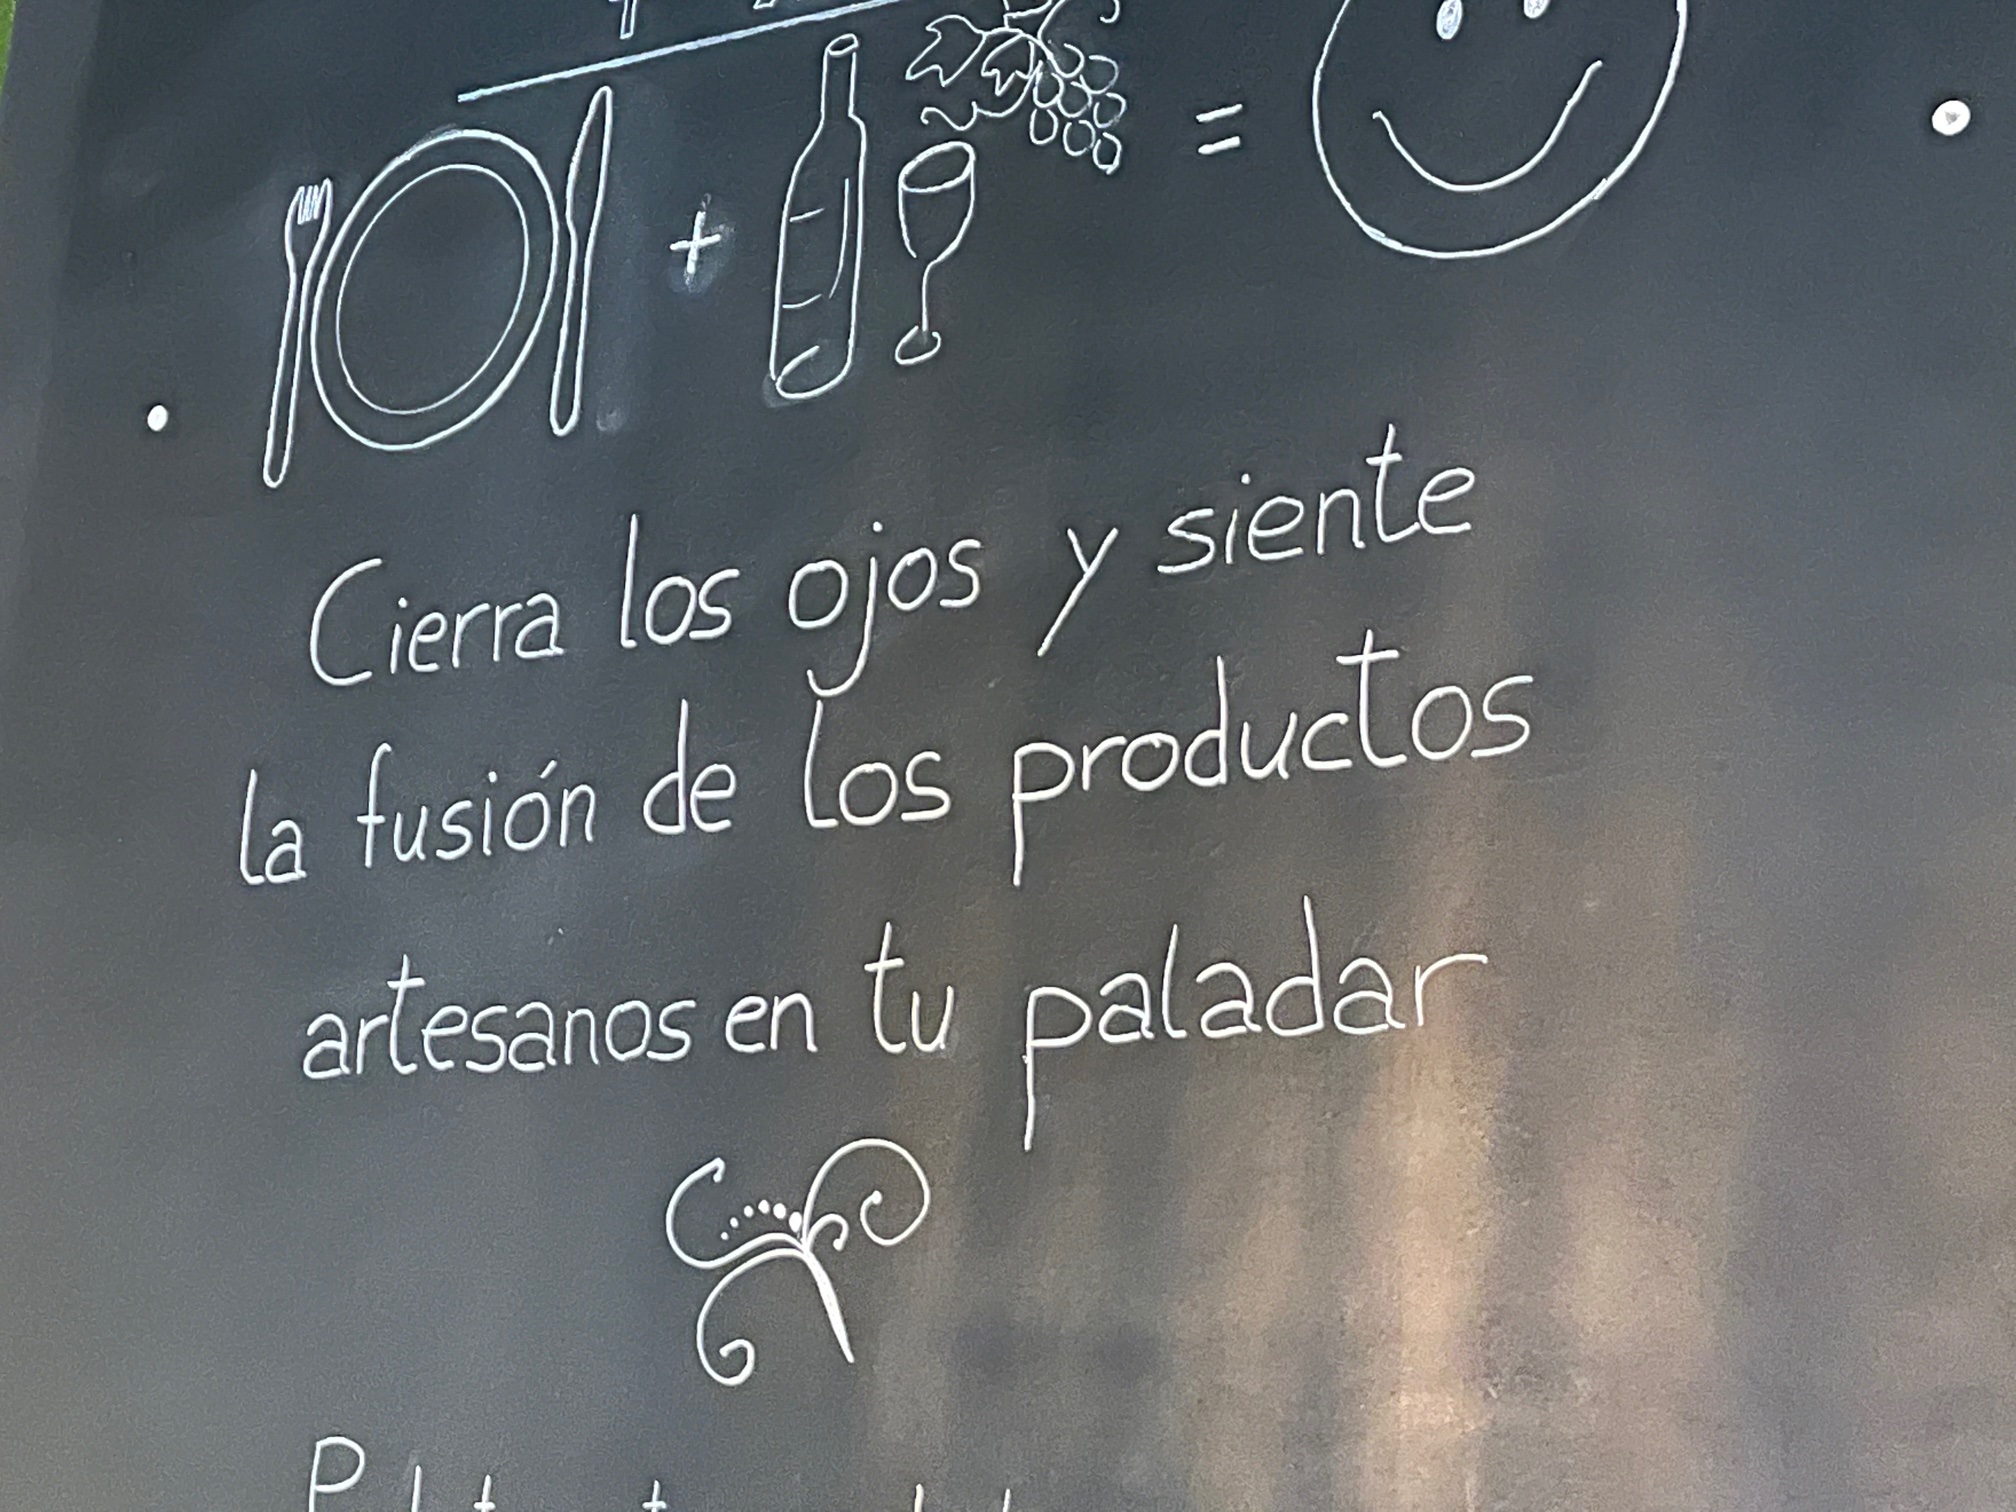 + =
Cierra los ojos y siente
la fusión de los productos
artesanos en tu paladar